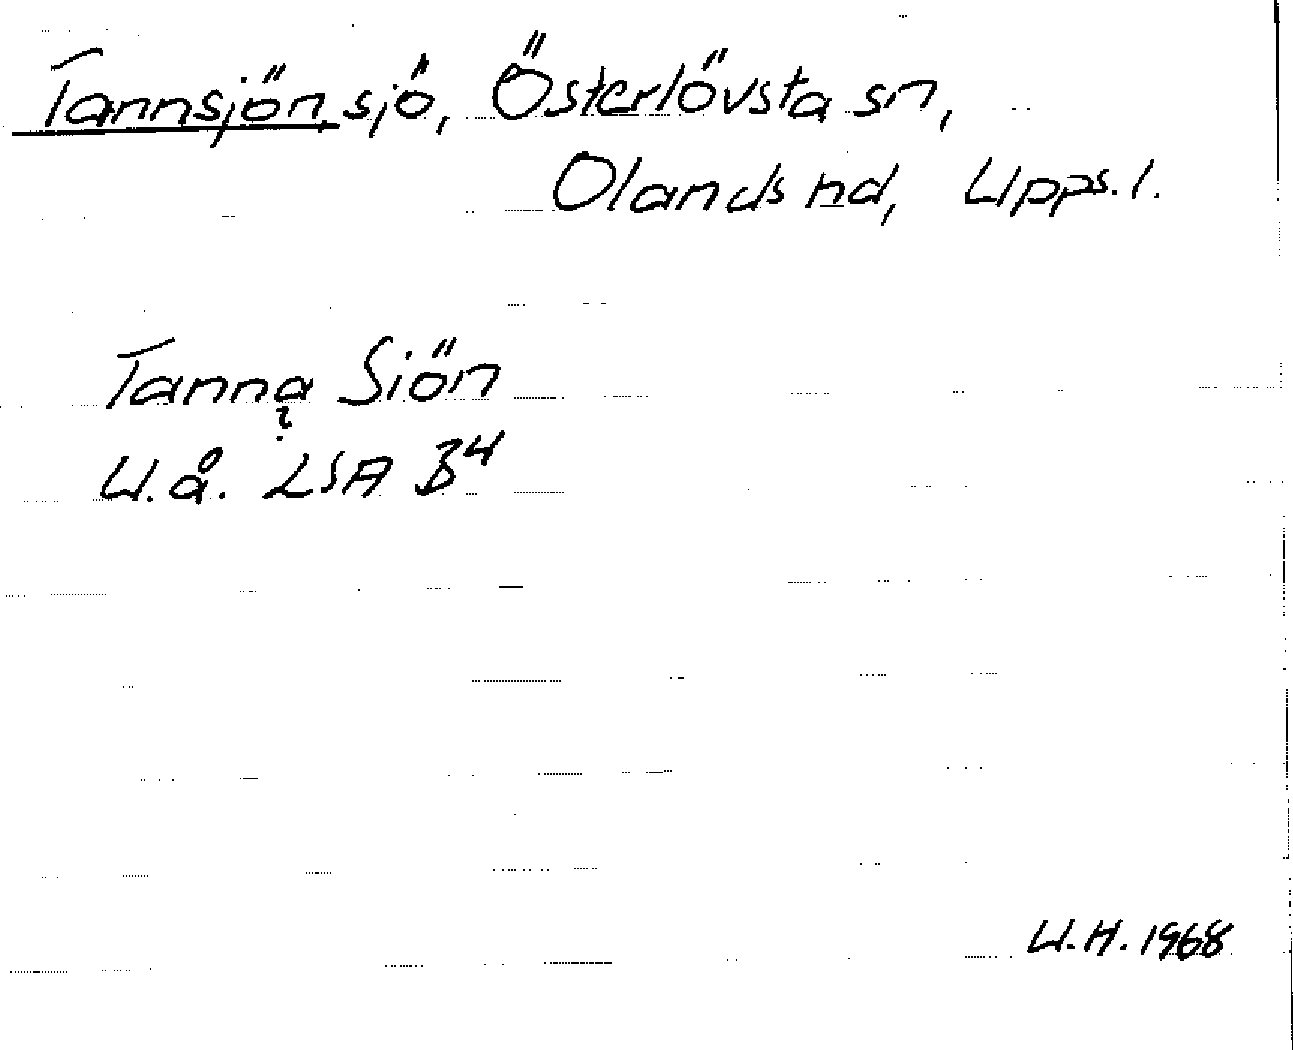 Tannsjön, sjö, Österlövsta sn,
Olands hd, Upps. l.
Tanna Siön
?
U.å. LSA B⁴
U.H. 1968